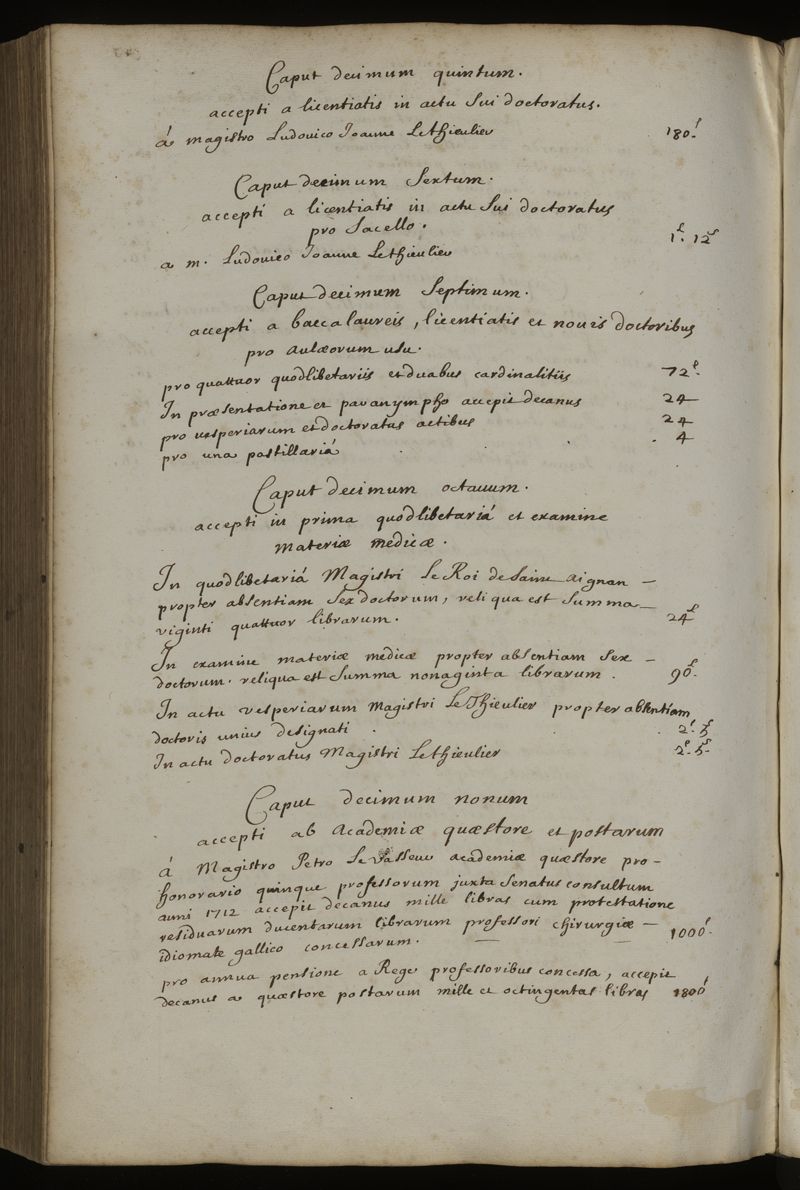 Caput decimum quintum.
accepti a licentiatis in actu sui doctoratus.
á magistro Ludovico Joanne Lethieulier 180.ˡ
Caput decimum Sextum.
accepti a licentiatis in actu sui doctoratus
pro Sacello.
a m. Ludovico Joanne Lethieulier 1ˡ. 12ˢ
Caput decimum Septimum.
accepti a baccalaureis, licentiatis et novis doctoribus
pro aulæorum usu.
pro quattuor quodlibetariis et duabus cardinalitiis 72ˡ.
In præsentatione et paranympho accepit decanus 24
pro vesperiarum et doctoratus actibus 24
pro una pastillariá . . . 4
Caput decimum octavum.
accepti in prima quodlibetariá et examine
materiæ medicæ.
In quodlibetariá Magistri Le Roi de Saint aignan —
propter absentiam Sex doctorum, reliqua est Summa —
viginti quattuor librarum. 24ˡ
In examine materiæ medicæ propter absentiam Sex —
doctorum. reliqua est Summa nonaginta librarum . 90ˡ.
In actu vesperiarum Magistri Le Thieulier propter absentiam
doctoris unius designati . . 2ˡ. 5ˢ
In actu doctoratus Magistri Lethieulier 2ˡ. 5ˢ.
Caput decimum nonum
accepti ab Academiæ quæstore et postarum
á Magistro Petro Le Vasseur academiæ quæstore pro –
honorario quinque professorum juxta Senatus consultum
anni 1712 accepit decanus mille libras cum protestatione
residuarum ducentarum librarum professori chirurgiæ —
idiomate gallico concessarum. — — 1000.ˡ
pro annua pensione a Rege professoribus concessa, accepit
decanus a quæstore postarum mille et octingentas libras 1800ˡ